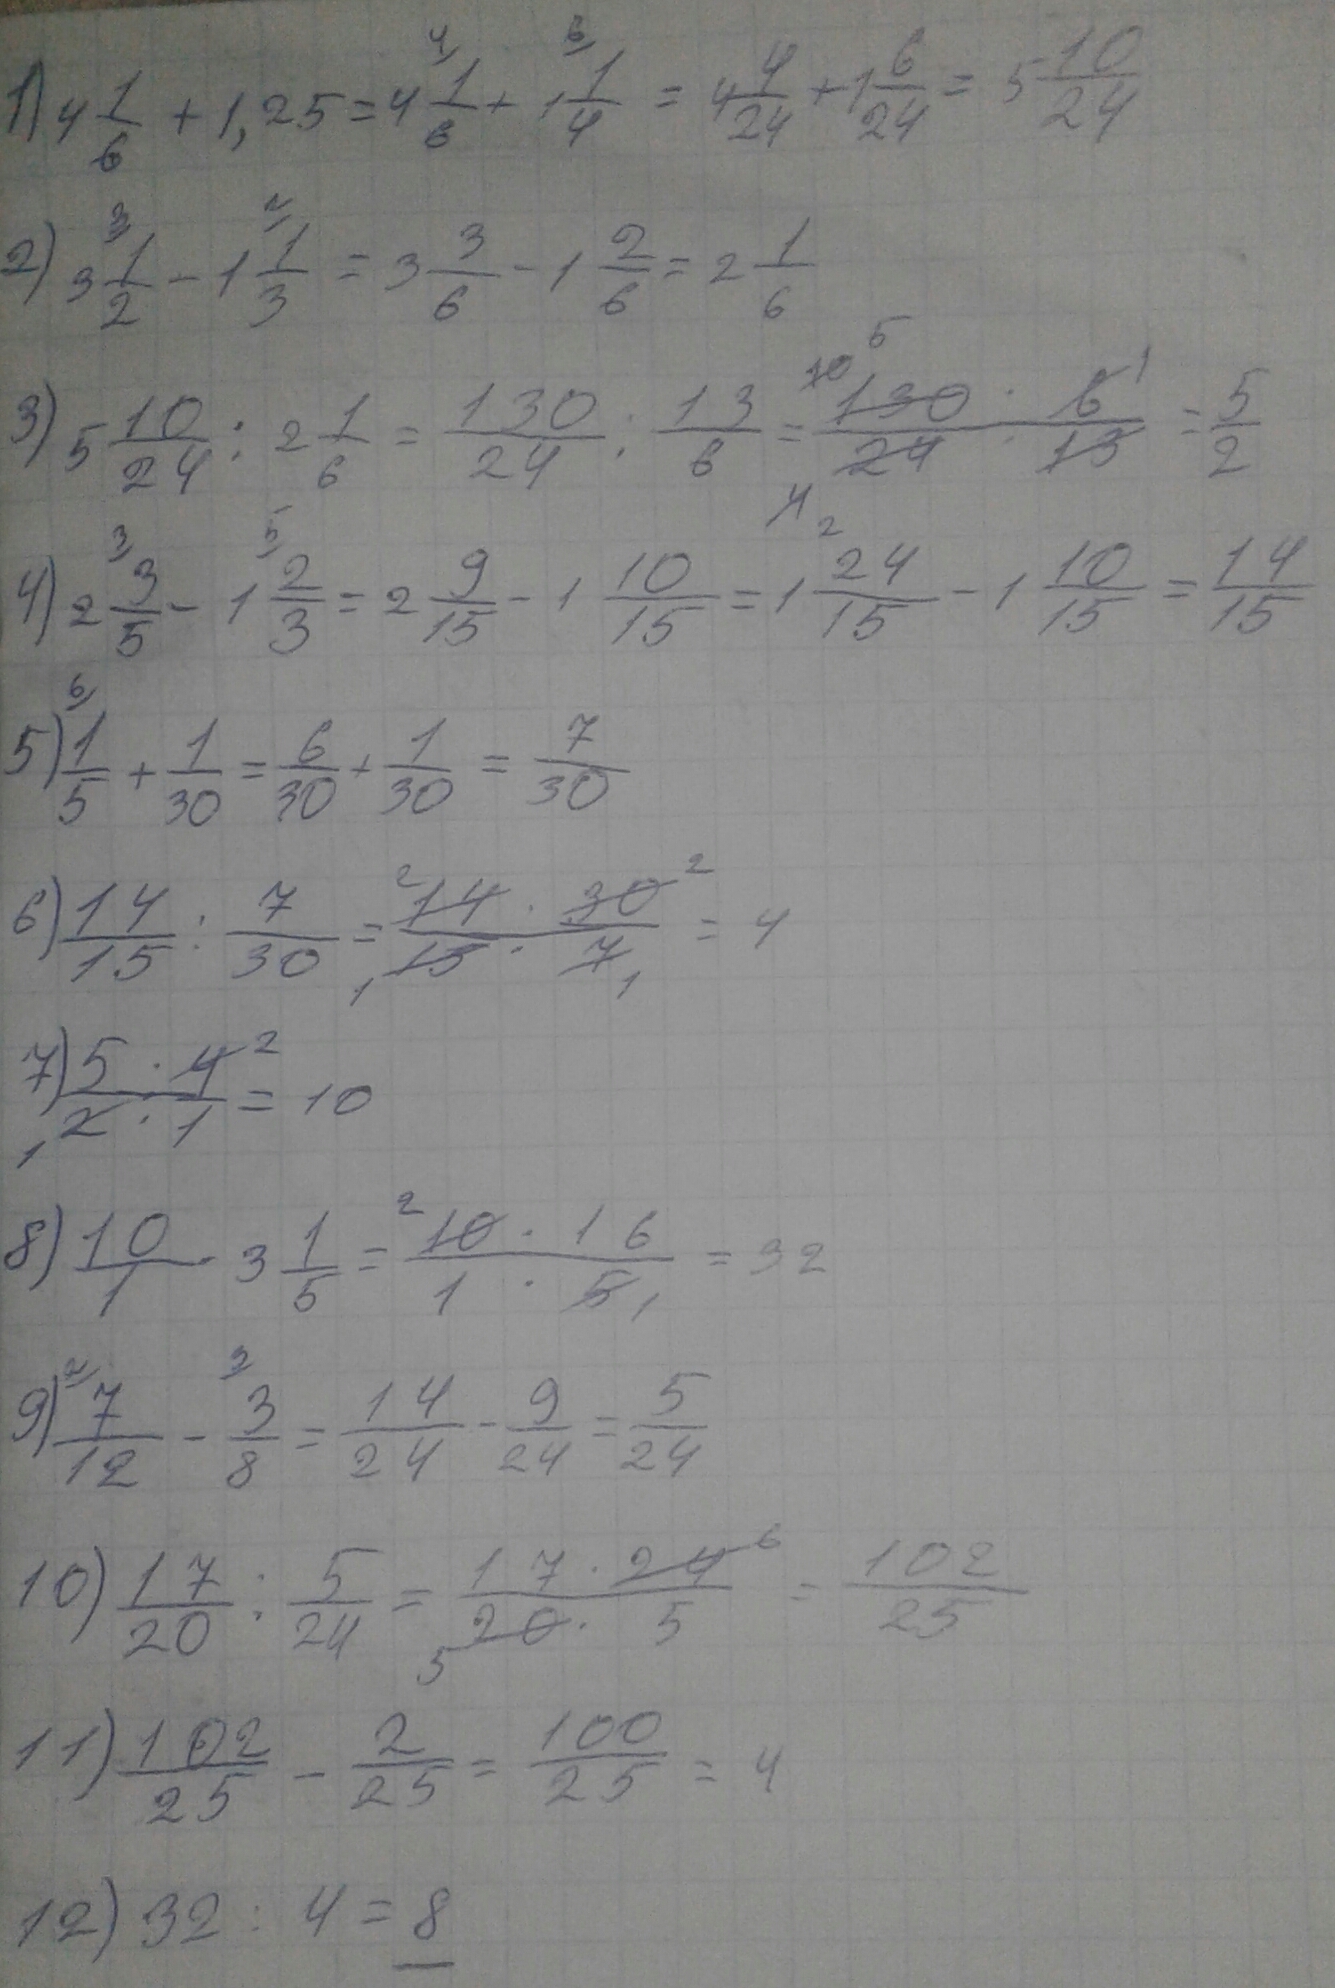 1) 4 1/6 + 1,25 = 4 1/6 + 1 1/4 = 4 4/24 + 1 6/24 = 5 10/24
2) 3 1/2 - 1 1/3 = 3 3/6 - 1 2/6 = 2 1/6
3) 5 10/24 : 2 1/6 = 130/24 : 13/6 = 130 · 6 / 24 · 13 = 5/2
4) 2 3/5 - 1 2/3 = 2 9/15 - 1 10/15 = 1 24/15 - 1 10/15 = 14/15
5) 1/5 + 1/30 = 6/30 + 1/30 = 7/30
6) 14/15 : 7/30 = 14 · 30 / 15 · 7 = 4
7) 5 · 4 / 2 · 1 = 10
8) 10/1 · 3 1/5 = 10 · 16 / 1 · 5 = 32
9) 7/12 - 3/8 = 14/24 - 9/24 = 5/24
10) 17/20 : 5/24 = 17 · 24 / 20 · 5 = 102/25
11) 102/25 - 2/25 = 100/25 = 4
12) 32 : 4 = 8